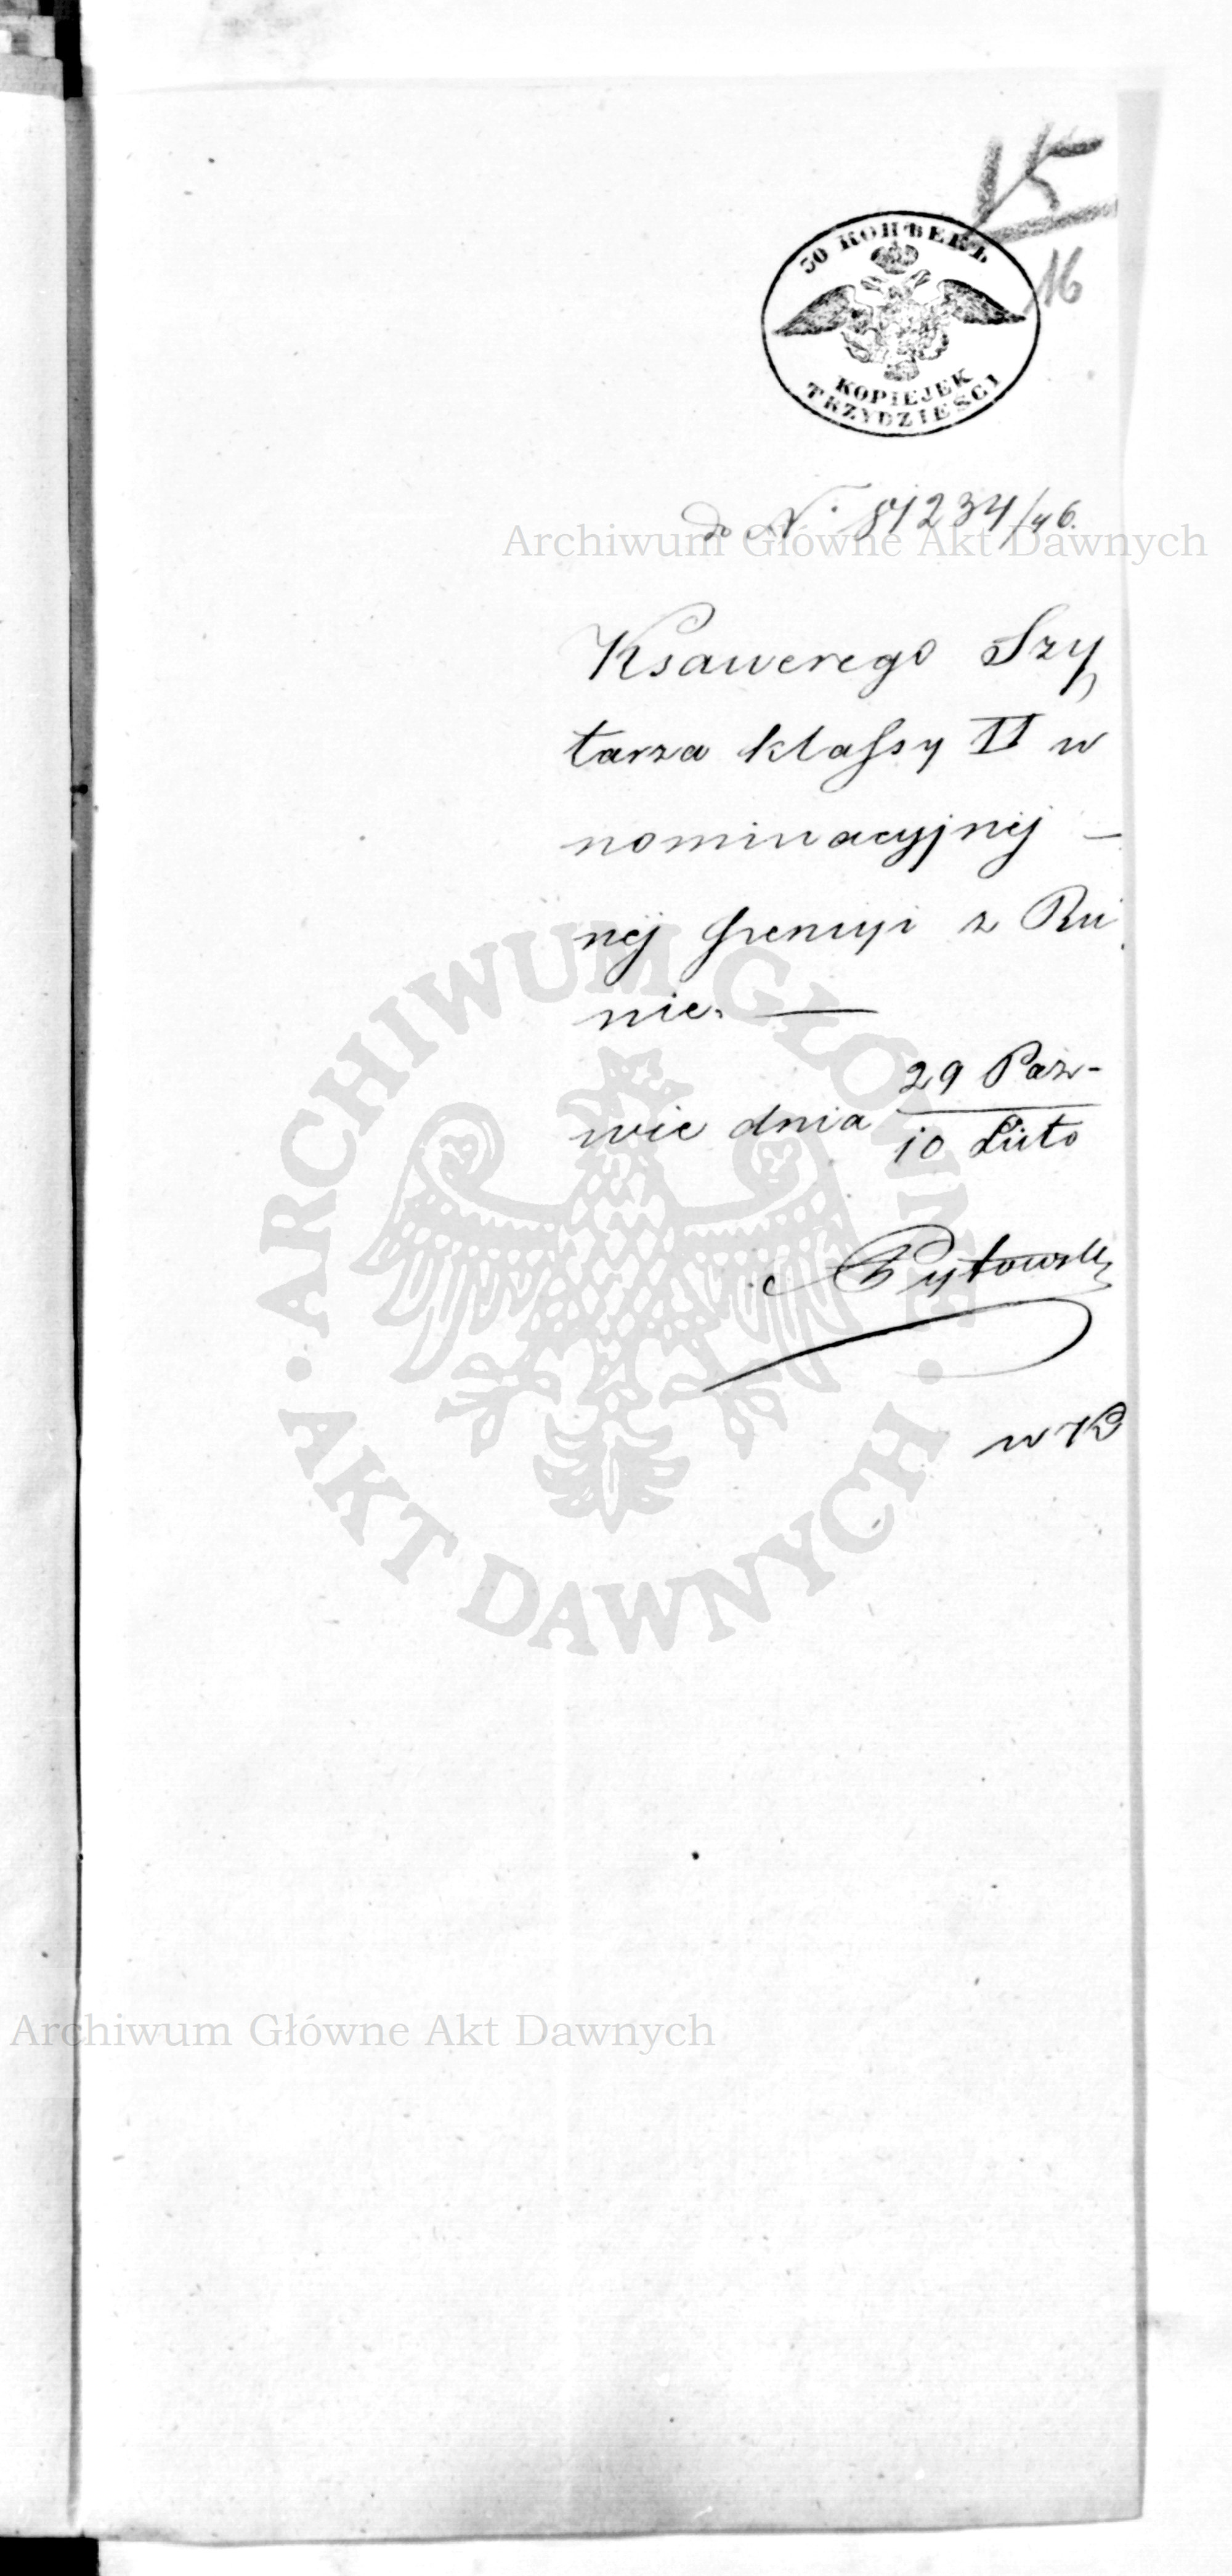 15
16
30 КОПѢЕКЪ
KOPIEJEK
TRZYDZIEŚCI
do N. 81234/46.
Archiwum Główne Akt Dawnych
Ksawerego Szy
tarza klassy II w
nominacyjnéj —
néj
z Ru
nie. —
wie dnia 29 Paz-
10 Luto
w K
ARCHIWUM GŁÓWNE
AKT DAWNYCH
Archiwum Główne Akt Dawnych